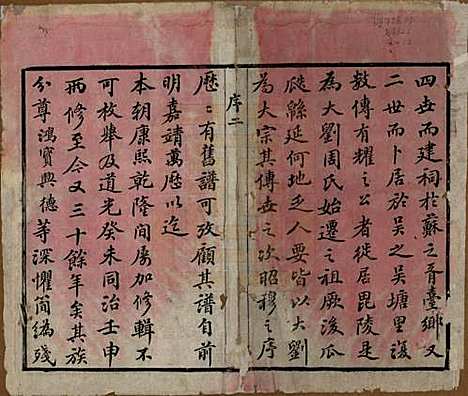 四世而建祠於蘇之胥臺鄉又
二世而卜居於吳之吳塘里復
數傳有耀之公者徙居毘陵是
為大劉周氏始遷之祖厥後瓜
瓞緜延何地乏人要皆以大劉
為大宗其傳世之次昭穆之序
序二
歷歷有舊譜可攷顧其譜自前
明嘉靖萬歷以迄
本朝康熙乾隆間屬加修輯不
可枚舉及道光癸未同治壬申
兩修至今又三十餘年矣其族
分尊鴻寶興德等深懼簡編殘